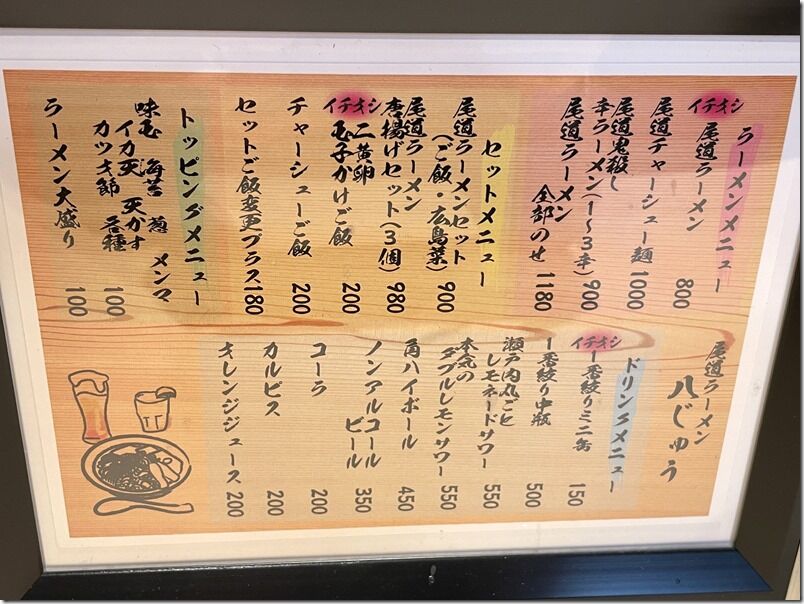 ラーメンメニュー
イチオシ
尾道ラーメン 800
尾道チャーシュー麺 1000
尾道鬼殺し
辛ラーメン(1〜3辛) 900
尾道ラーメン
全部のせ 1180
セットメニュー
尾道ラーメンセット
(ご飯・広島菜) 900
尾道ラーメン
唐揚げセット(3個) 980
イチオシ
二黄卵
玉子かけご飯 200
チャーシューご飯 200
セットご飯変更プラス180
トッピングメニュー
味玉 海苔 葱 メンマ
イカ天 天かす
カツオ節 各種 100
ラーメン大盛り 100
尾道ラーメン
八じゅう
ドリンクメニュー
イチオシ
一番絞りミニ缶 150
一番絞り中瓶 500
瀬戸内丸ごと
レモネードサワー 550
本気の
ダブルレモンサワー 550
角ハイボール 450
ノンアルコール
ビール 350
コーラ 200
カルピス 200
オレンジジュース 200